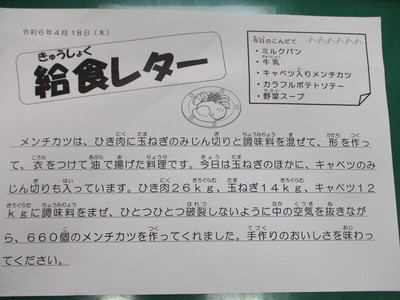 令和6年4月18日(木)
きゅうしょく
給食レター
今日のこんだて
・ミルクパン
・牛乳
・キャベツ入りメンチカツ
・カラフルポテトソテー
・野菜スープ
メンチカツは、ひき肉に玉ねぎのみじん切りと調味料を混ぜて、形を作っ
て、衣をつけて油で揚げた料理です。今日は玉ねぎのほかに、キャベツのみ
じん切りも入っています。ひき肉26kg、玉ねぎ14kg、キャベツ12
kgに調味料をまぜ、ひとつひとつ破裂しないように中の空気を抜きなが
ら、660個のメンチカツを作ってくれました。手作りのおいしさを味わっ
てください。